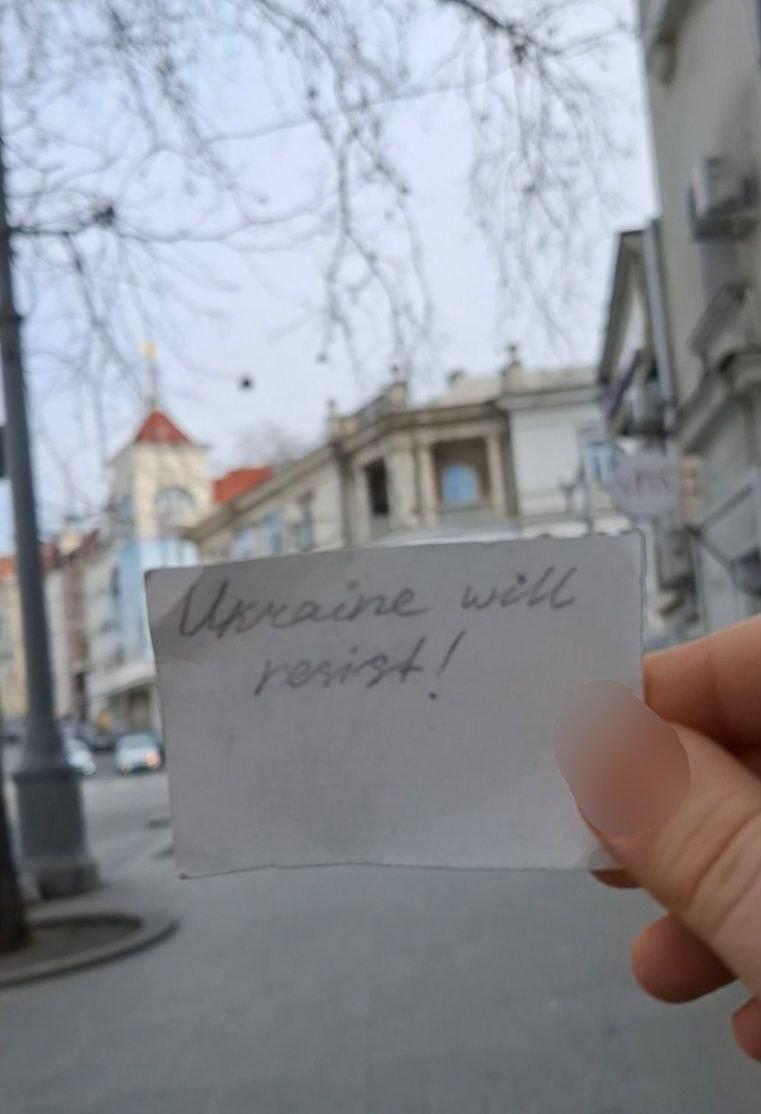 Ukraine will
resist!